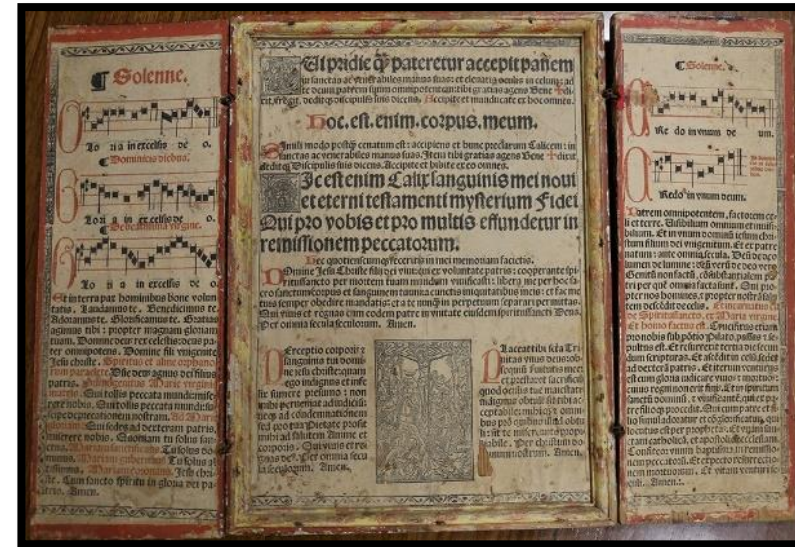 ¶ Solenne.
Lo ri a in excelsis de o.
¶ Dominicis diebus.
Lo ri a in excelsis de o.
¶ De beata maria virgine.
Lo ri a in excelsis de o.
Et in terra pax hominibus bone volun
tatis. Laudamus te. Benedicimus te.
Adoramus te. Glorificamus te. Gratias
agimus tibi: propter magnam gloriam
tuam. Domine deus rex celestis: deus pa
ter omnipotens. Domine fili vnigenite
Jesu christe. Spiritus et alme orphano
rum paraclete. Dñe deus agnus dei filius
patris. Primogenitus Marie virginis
matris. Qui tollis peccata mundi: mise-
rere nobis. Qui tollis peccata mundi: su-
scipe deprecationem nostram. Ad Marie
gloriam. Qui sedes ad dexteram patris.
miserere nobis. Quoniam tu solus san-
ctus. Mariam sanctificans. Tu solus do-
minus. Mariam gubernans. Tu solus al
tissimus. Mariam coronans. Jesu chri-
ste. Cum sancto spiritu in gloria dei pa-
tris. Amen.
Qui pridie q̃ pateretur accepit panem
in sanctas ac venerabiles manus suas: et eleuatis oculis in celum: ad
te deum patrem suum omnipotentem: tibi gratias agens Bene ✝ di-
xit, fregit, deditq̃ discipulis suis dicens. Accipite et manducate ex hoc omnes.
Hoc.est.enim.corpus.meum.
Simili modo postq̃ cenatum est: accipiens et hunc preclarum Calicem: in
sanctas ac venerabiles manus suas. Item tibi gratias agens Bene ✝ dixit
deditq̃ Discipulis suis dicens. Accipite et bibite ex eo omnes.
Hic est enim Calix sanguinis mei noui
et eterni testamenti mysterium Fidei
Qui pro vobis et pro multis effundetur in
remissionem peccatorum.
Hec quotienscumq̃ feceritis in mei memoriam facietis.
Domine Jesu Christe fili dei viui: qui ex voluntate patris: cooperante spi-
ritu sancto per mortem tuam mundum viuificasti: libera me per hoc sa-
crosanctum corpus et sanguinem tuum a cunctis iniquitatibus meis: et fac me
tuis semper obedire mandatis: et a te nunq̃ in perpetuum separari permittas.
Qui viuis et regnas cum eodem patre in vnitate eiusdem spiritussancti Deus.
Per omnia secula seculorum. Amen.
Perceptio corporis et
sanguinis tui domi-
ne jesu christe: quam
ego indignus et infe
lix sumere presumo: non
mihi perueniat ad iudiciũ
neq̃ ad condemnationem
sed pro tua Pietate prosit
mihi ad salutem Anime et
corporis. Qui viuis et re-
gnas deꝰ. Per omnia secu
la seculorum. Amen.
Placeat tibi scta Tri
nitas vnus deus: ob-
sequiũ seruitutis mee:
et presta vt sacrificiũ
quod oculis tue maiestatis
indignus obtuli: sit tibi
acceptabile: mihiq̃ et omni-
bus pro quibus illud obtu
li: sit te miserante propitia-
bile. Per christum do-
minum nostrum. Amen.
¶ Solenne.
Re do in vnum de um.
Redo in vnum deum.
Patrem omnipotentem, factorem ce-
li et terre. Uisibilium omnium et inuisi-
bilium. Et in vnum dominũ iesum chri-
stum filium dei vnigenitum. Et ex patre
natum: ante omnia secula. Deũ de deo
lumen de lumine: deũ verũ de deo vero
Genitũ non factũ, cõsubstantialem pa
tri per quẽ omnia facta sunt. Qui pro-
pter nos homines, et propter nostrã salu
tem descẽdit de celis. Et incarnatus est
de Spiritusancto, ex Maria virgine
Et homo factus est. Crucifixus etiam
pro nobis sub põtio Pilato, passus et se-
pultus est. Et resurrexit tertia die secun
dum scripturas. Et ascẽdit in celũ: sedet
ad dexterã patris. Et iterum venturus
est cum gloria iudicare viuos: et mortuos:
cuius regni non erit finis. Et in spiritum
sanctũ dominũ, et viuificantẽ, qui ex pa-
tre filioq̃ procedit. Qui cum patre et fi-
lio simul adoratur et cõglorificatur, qui
locutus est per prophetas. Et vnam san
ctam catholicã, et apostolicã ecclesiam.
Confiteor vnum baptisma in remissio-
nem peccatorũ. Et expecto resurrectio-
nem mortuorum. Et vitam venturi se-
culi. Amen.